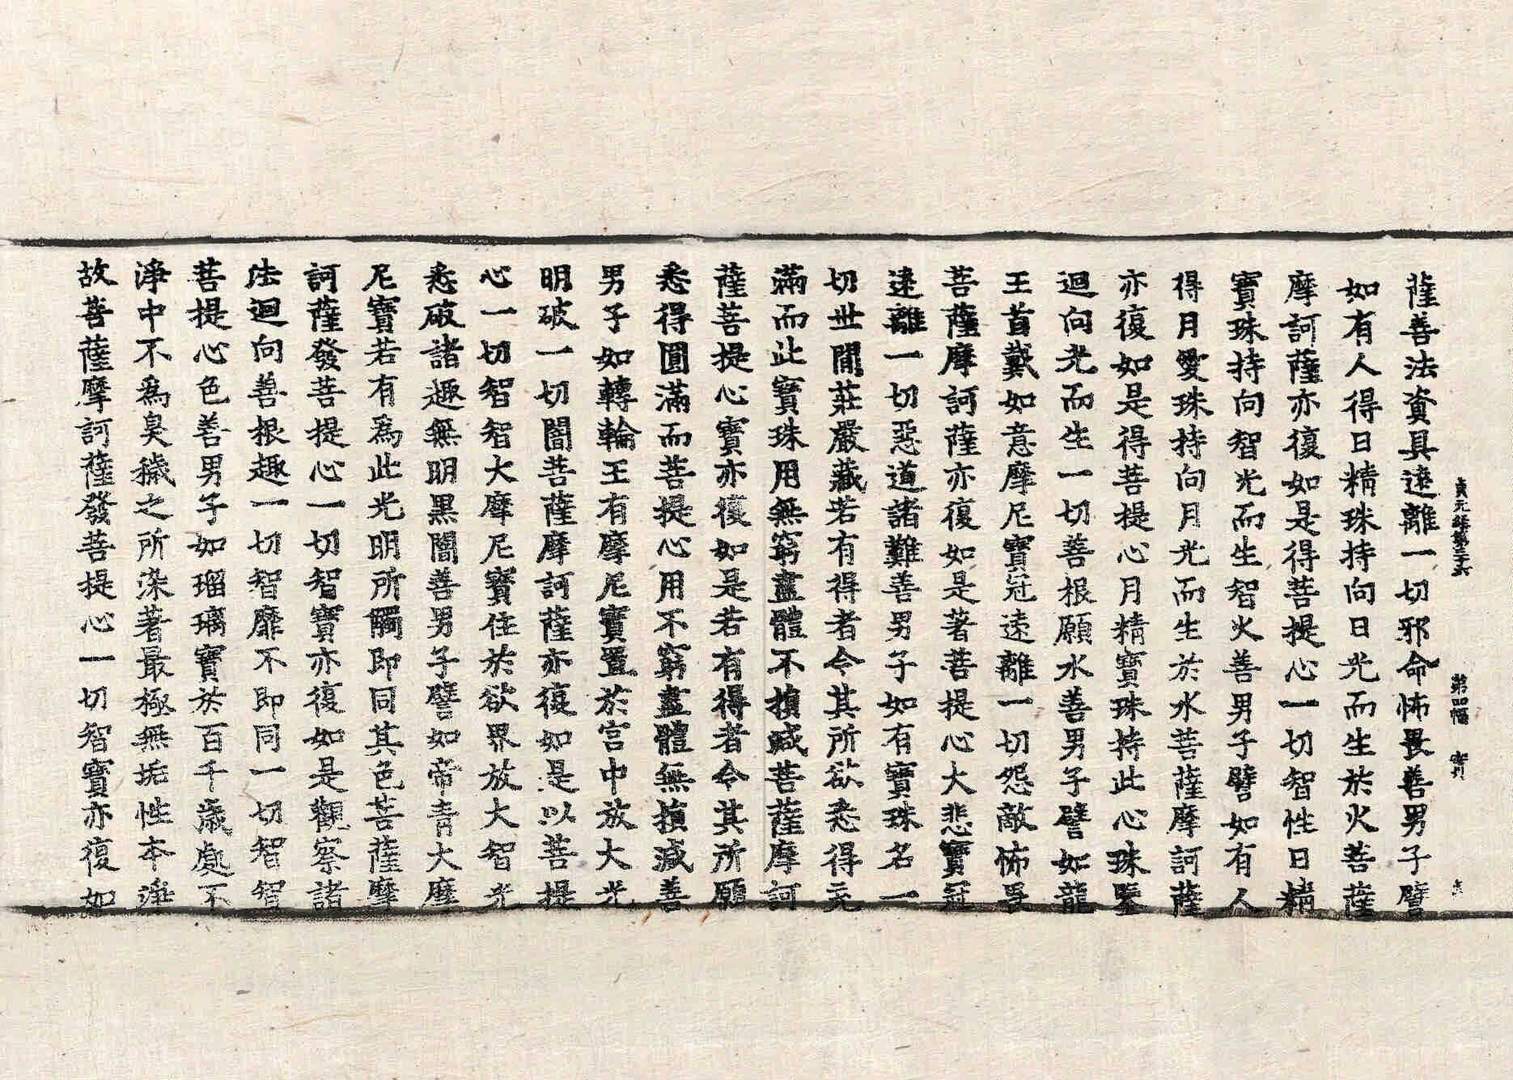 貞元經第三十六　第四幅　寶川
薩善法資具遠離一切邪命怖畏善男子譬
如有人得日精珠持向日光而生於火菩薩
摩訶薩亦復如是得菩提心一切智性日精
寶珠持向智光而生智火善男子譬如有人
得月愛珠持向月光而生於水菩薩摩訶薩
亦復如是得菩提心月精寶珠持此心珠鑒
迴向光而生一切善根願水善男子譬如龍
王首戴如意摩尼寶冠遠離一切怨敵怖畏
菩薩摩訶薩亦復如是著菩提心大悲寶冠
遠離一切惡道諸難善男子如有寶珠名一
切世間莊嚴藏若有得者令其所欲悉得充
滿而此寶珠用無窮盡體不損減菩薩摩訶
薩菩提心寶亦復如是若有得者令其所願
悉得圓滿而菩提心用不窮盡體無損減善
男子如轉輪王有摩尼寶置於宮中放大光
明破一切闇菩薩摩訶薩亦復如是以菩提
心一切智智大摩尼寶住於欲界放大智光
悉破諸趣無明黑闇善男子譬如帝青大摩
尼寶若有為此光明所觸即同其色菩薩摩
訶薩發菩提心一切智寶亦復如是觀察諸
法迴向善根趣一切智靡不即同一切智智
菩提心色善男子如瑠璃寶於百千歲處不
淨中不為臭穢之所染著最極無垢性本淨
故菩薩摩訶薩發菩提心一切智寶亦復如